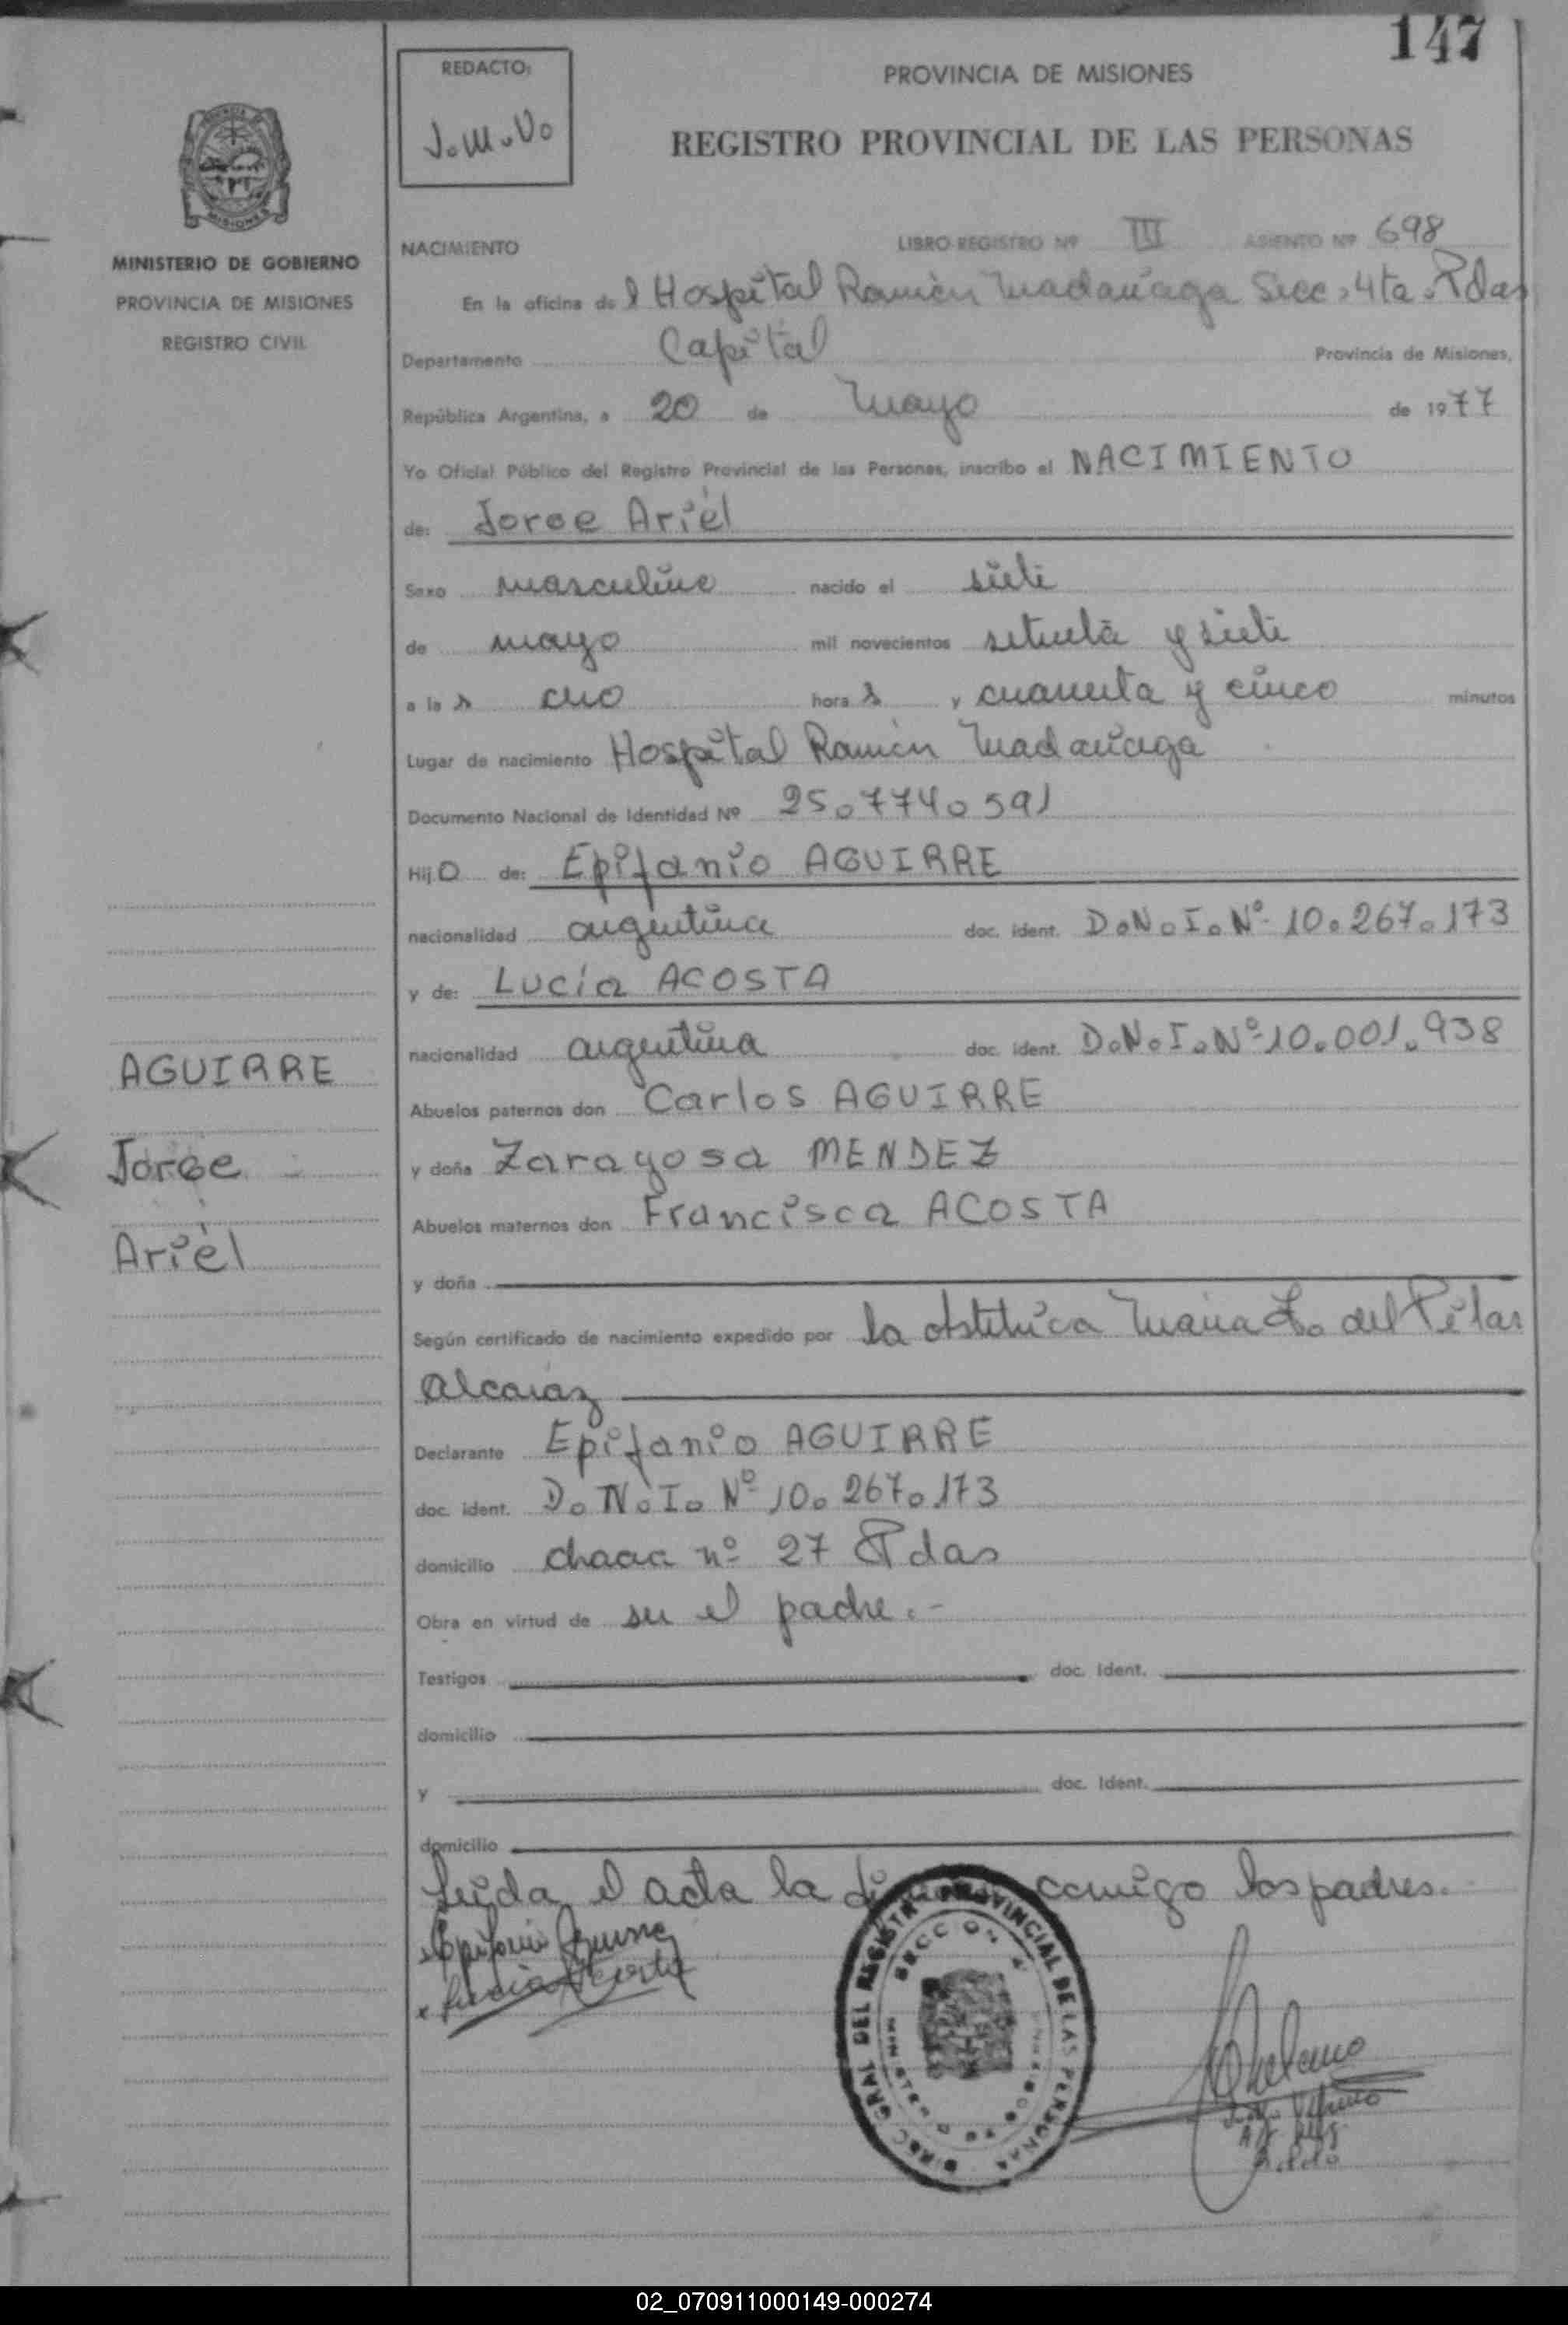 147
REDACTO:
J.M.V.
PROVINCIA DE MISIONES
REGISTRO PROVINCIAL DE LAS PERSONAS
MISIONES
MINISTERIO DE GOBIERNO
PROVINCIA DE MISIONES
REGISTRO CIVIL
NACIMIENTO LIBRO REGISTRO Nº III ASIENTO Nº 698
En la oficina del Hospital Ramón Madariaga Secc. 4ta. Pdas
Departamento Capital Provincia de Misiones,
República Argentina, a 20 de Mayo de 1977
Yo Oficial Público del Registro Provincial de las Personas, inscribo el NACIMIENTO
de: Jorge Ariel
Sexo masculino nacido el siete
de mayo mil novecientos setenta y siete
a las horas y cuarenta y cinco minutos
Lugar de nacimiento Hospital Ramón Madariaga
Documento Nacional de Identidad Nº 25.774.591
Hijo de: Epifanio AGUIRRE
nacionalidad argentina doc. ident. D.N.I.Nº 10.267.173
y de: Lucía ACOSTA
nacionalidad argentina doc. ident. D.N.I.Nº 10.001.938
Abuelos paternos don Carlos AGUIRRE
y doña Zaragosa MENDEZ
Abuelos maternos don Francisca ACOSTA
y doña
Según certificado de nacimiento expedido por la obstetrica Maria L. del Pilar
Alcaraz
Declarante Epifanio AGUIRRE
doc. ident. D.N.I. Nº 10.267.173
domicilio chacra nº 27 Pdas
Obra en virtud de ser el padre.-
Testigos doc. Ident.
domicilio
y doc. Ident.
domicilio
Leida el acta la conmigo los padres.
Epifanio Aguirre
Lucia Acosta
AGUIRRE
Jorge
Ariel
DIREC GRAL DEL REGISTRO PROVINCIAL DE LAS PERSONAS
SECCION 4
02_070911000149-000274